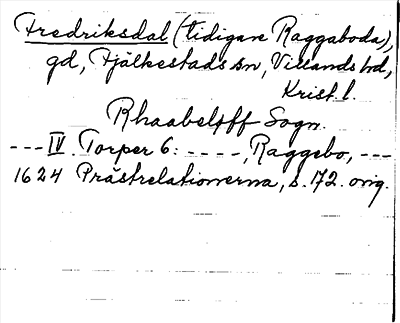 Fredriksdal (tidigare Raggaboda),
gd, Fjälkestads sn, Villands hd,
Krist. l.
Rhaabelöff Sogn.
--- IV. Torper 6: ----, Raggebo, ---
1624 Prästrelationerna, s. 172. orig.